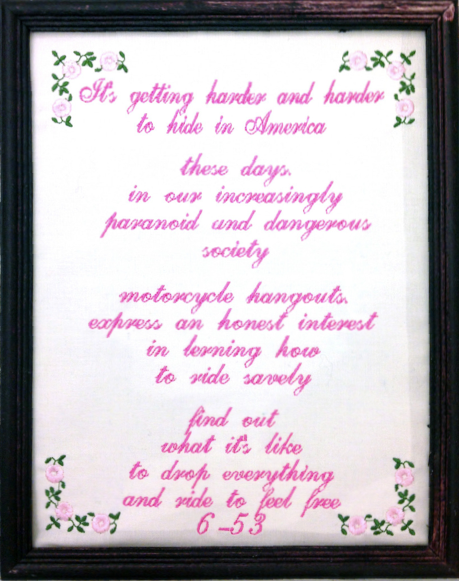 It's getting harder and harder
to hide in America
these days.
in our increasingly
paranoid and dangerous
society
motorcycle hangouts.
express an honest interest
in lerning how
to ride savely
find out
what it's like
to drop everything
and ride to feel free
6-53